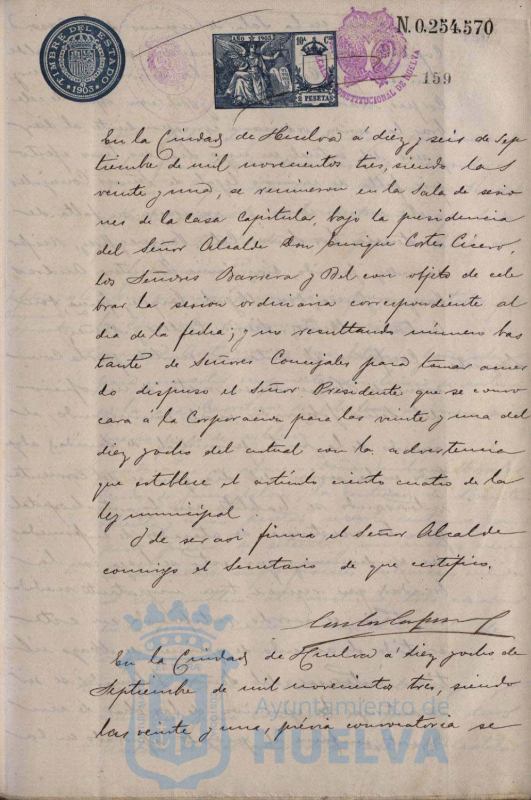 TIMBRE DEL ESTADO
1903
AÑO 1903
10ª C
2 PESETAS
N. 0.254.570
CONSTITUCIONAL DE HUELVA
159
En la Ciudad de Huelva á diez y seis de Sep
tiembre de mil novecientos tres, siendo las
veinte y una, se reunieron en la Sala de sesio
nes de la Casa Capitular, bajo la presidencia
del Señor Alcalde Don Enrique Cortes Cícero,
los Señores Barrera y Bel con objeto de cele
brar la sesion ordinaria correspondiente al
dia de la fecha; y no resultando número bas
tante de Señores Concejales para tomar acuer
do dispuso el Señor Presidente que se convo
cara á la Corporacion para las veinte y una del
diez y ocho del actual con la advertencia
que establece el artículo ciento cuatro de la
ley municipal.
Y de ser asi firma el Señor Alcalde
conmigo el Secretario de que certifico.
En la Ciudad de Huelva á diez y ocho de
Septiembre de mil novecientos tres, siendo
las veinte y una, prévia convocatoria se
Ayuntamiento de
HUELVA